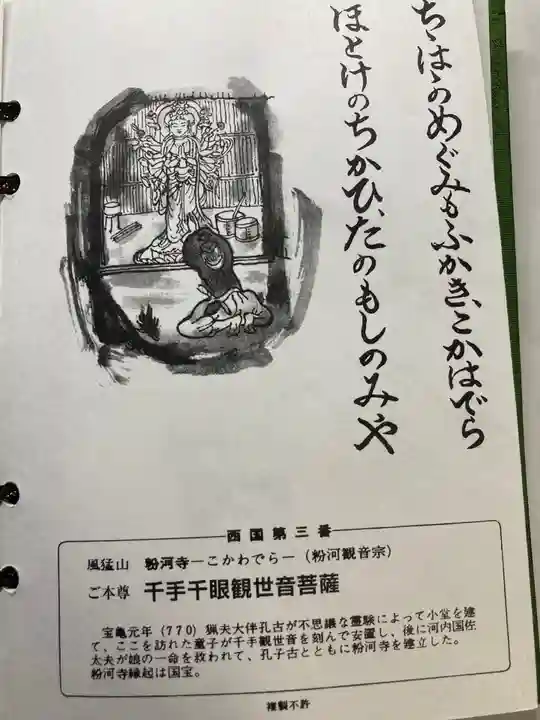 ちゝはゝのめぐみもふかき、こかはでら
ほとけのちかひ、たのもしのみや
西国第三番
風猛山 粉河寺―こかわでら―（粉河観音宗）
ご本尊 千手千眼観世音菩薩
宝亀元年（770）猟夫大伴孔古が不思議な霊験によって小堂を建
て、ここを訪れた童子が千手観世音を刻んで安置し、後に河内国佐
太夫が娘の一命を救われて、孔子古とともに粉河寺を建立した。
粉河寺縁起は国宝。
複製不許